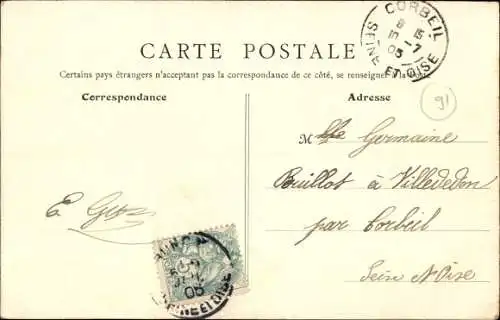 CORBEIL
SEINE ET OISE
8 15
15 -7
05
CARTE POSTALE
Certains pays étrangers n'acceptant pas la correspondance de ce côté, se renseigner à la
Correspondance
Adresse
91
Mlle Germaine
Bouillot à Villededon
par Corbeil
Seine & Oise
E.
05
SEINE ET OISE